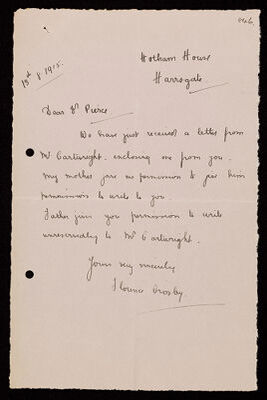 13th. 8. 1915.
Hotham House
Harrogate
Dear Dr Pierce
We have just received a letter from
Mr Cartwright. enclosing one from you.
My mother gave me permission to give him
permission to write to you.
Father gives you permission to write
unreservedly to Mr Cartwright.
Yours very sincerely
Florence Crosby.